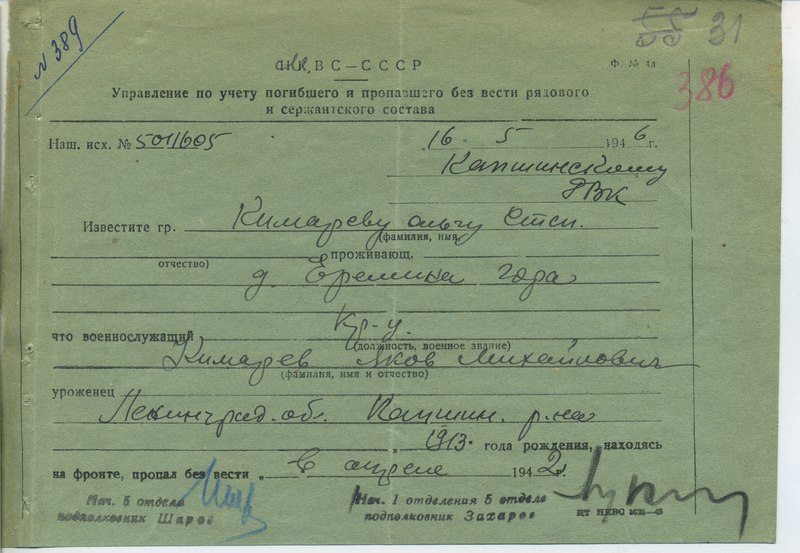 N 389
58 31
НКВС—СССР
Ф. № 4а
386
Управление по учету погибшего и пропавшего без вести рядового
и сержантского состава
Наш. исх. № 5011605
„16. 5 1946 г.
Капшинскому
РВК
Известите гр. Кимареву Ольгу Степ.
(фамилия, имя,
проживающ.
отчество)
д. Еремина Гора
Кр-ц.
что военнослужащий
(должность, военное звание)
Кимарев Яков Михайлович
(фамилия, имя и отчество)
уроженец
Ленинград. об. Капшин. р-на
„ 1913. года рождения, находясь
на фронте, пропал без вести „ в апреле 1942 г.
Нач. 5 отдела
подполковник Шаров
Нач. 1 отделения 5 отдела
подполковник Захаров